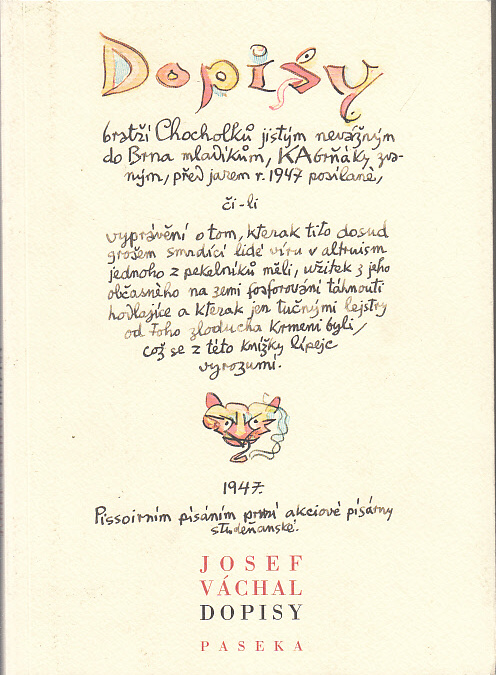 Dopisy
bratří Chocholků jistým nevážným
do Brna mladíkům, KAbrňáky zva-
ným, před jarem r. 1947 posílané,
či-li
vyprávění o tom, kterak tito dosud
grošem smrdící lidé víru v altruism
jednoho z pekelníků měli, užitek z jeho
občasného na zemi fosforování táhnouti
hodlajíce a kterak jen tučnými lejstry
od toho zloducha krmeni byli,
což se z této knížky lépeje
vyrozumí.
1947.
Pissoirním písáním první akciové písárny
studeňanské.
JOSEF
VÁCHAL
DOPISY
PASEKA